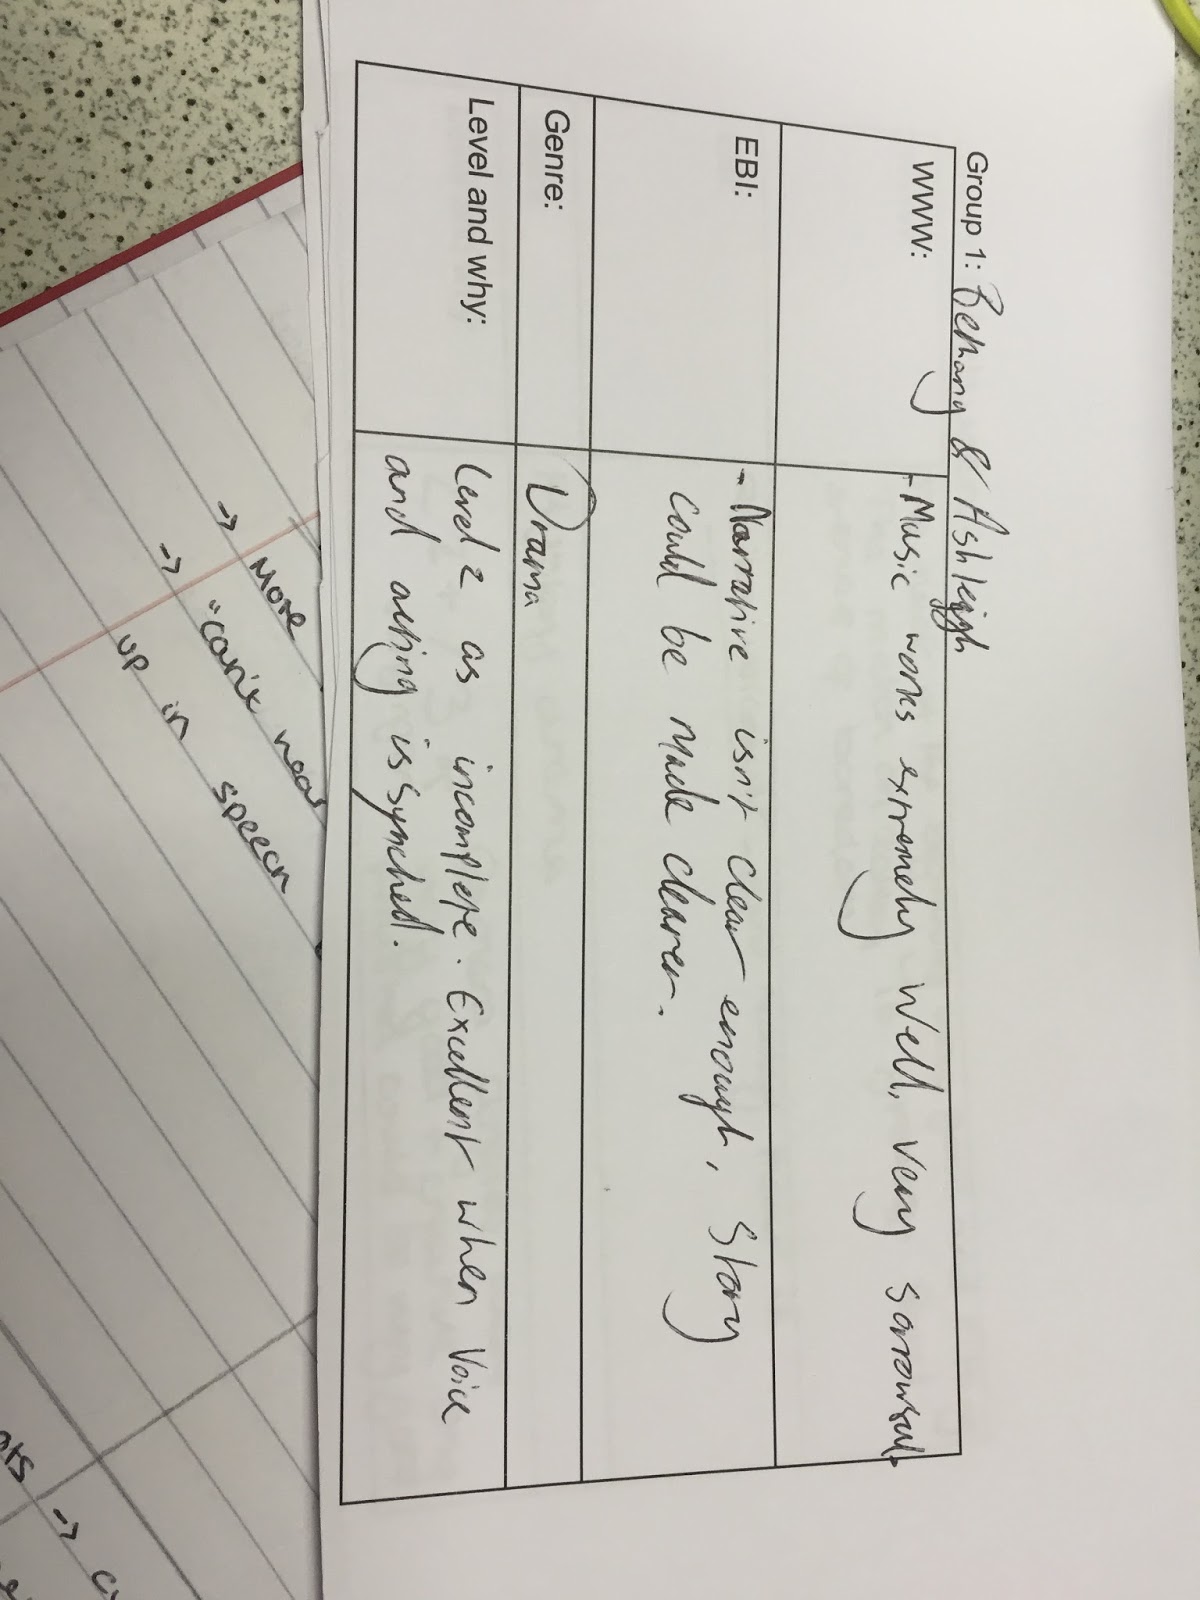 Group 1: Bethany & Ashleigh
WWW:
- Music works extremely well, very sorrowful.
EBI:
- Narrative isn't clear enough, Story
could be made clearer.
Genre:
Drama
Level and why:
Level 2 as incomplete. Excellent when voice
and acting is synched.
→ More
→ "can't hear
up in speech
→